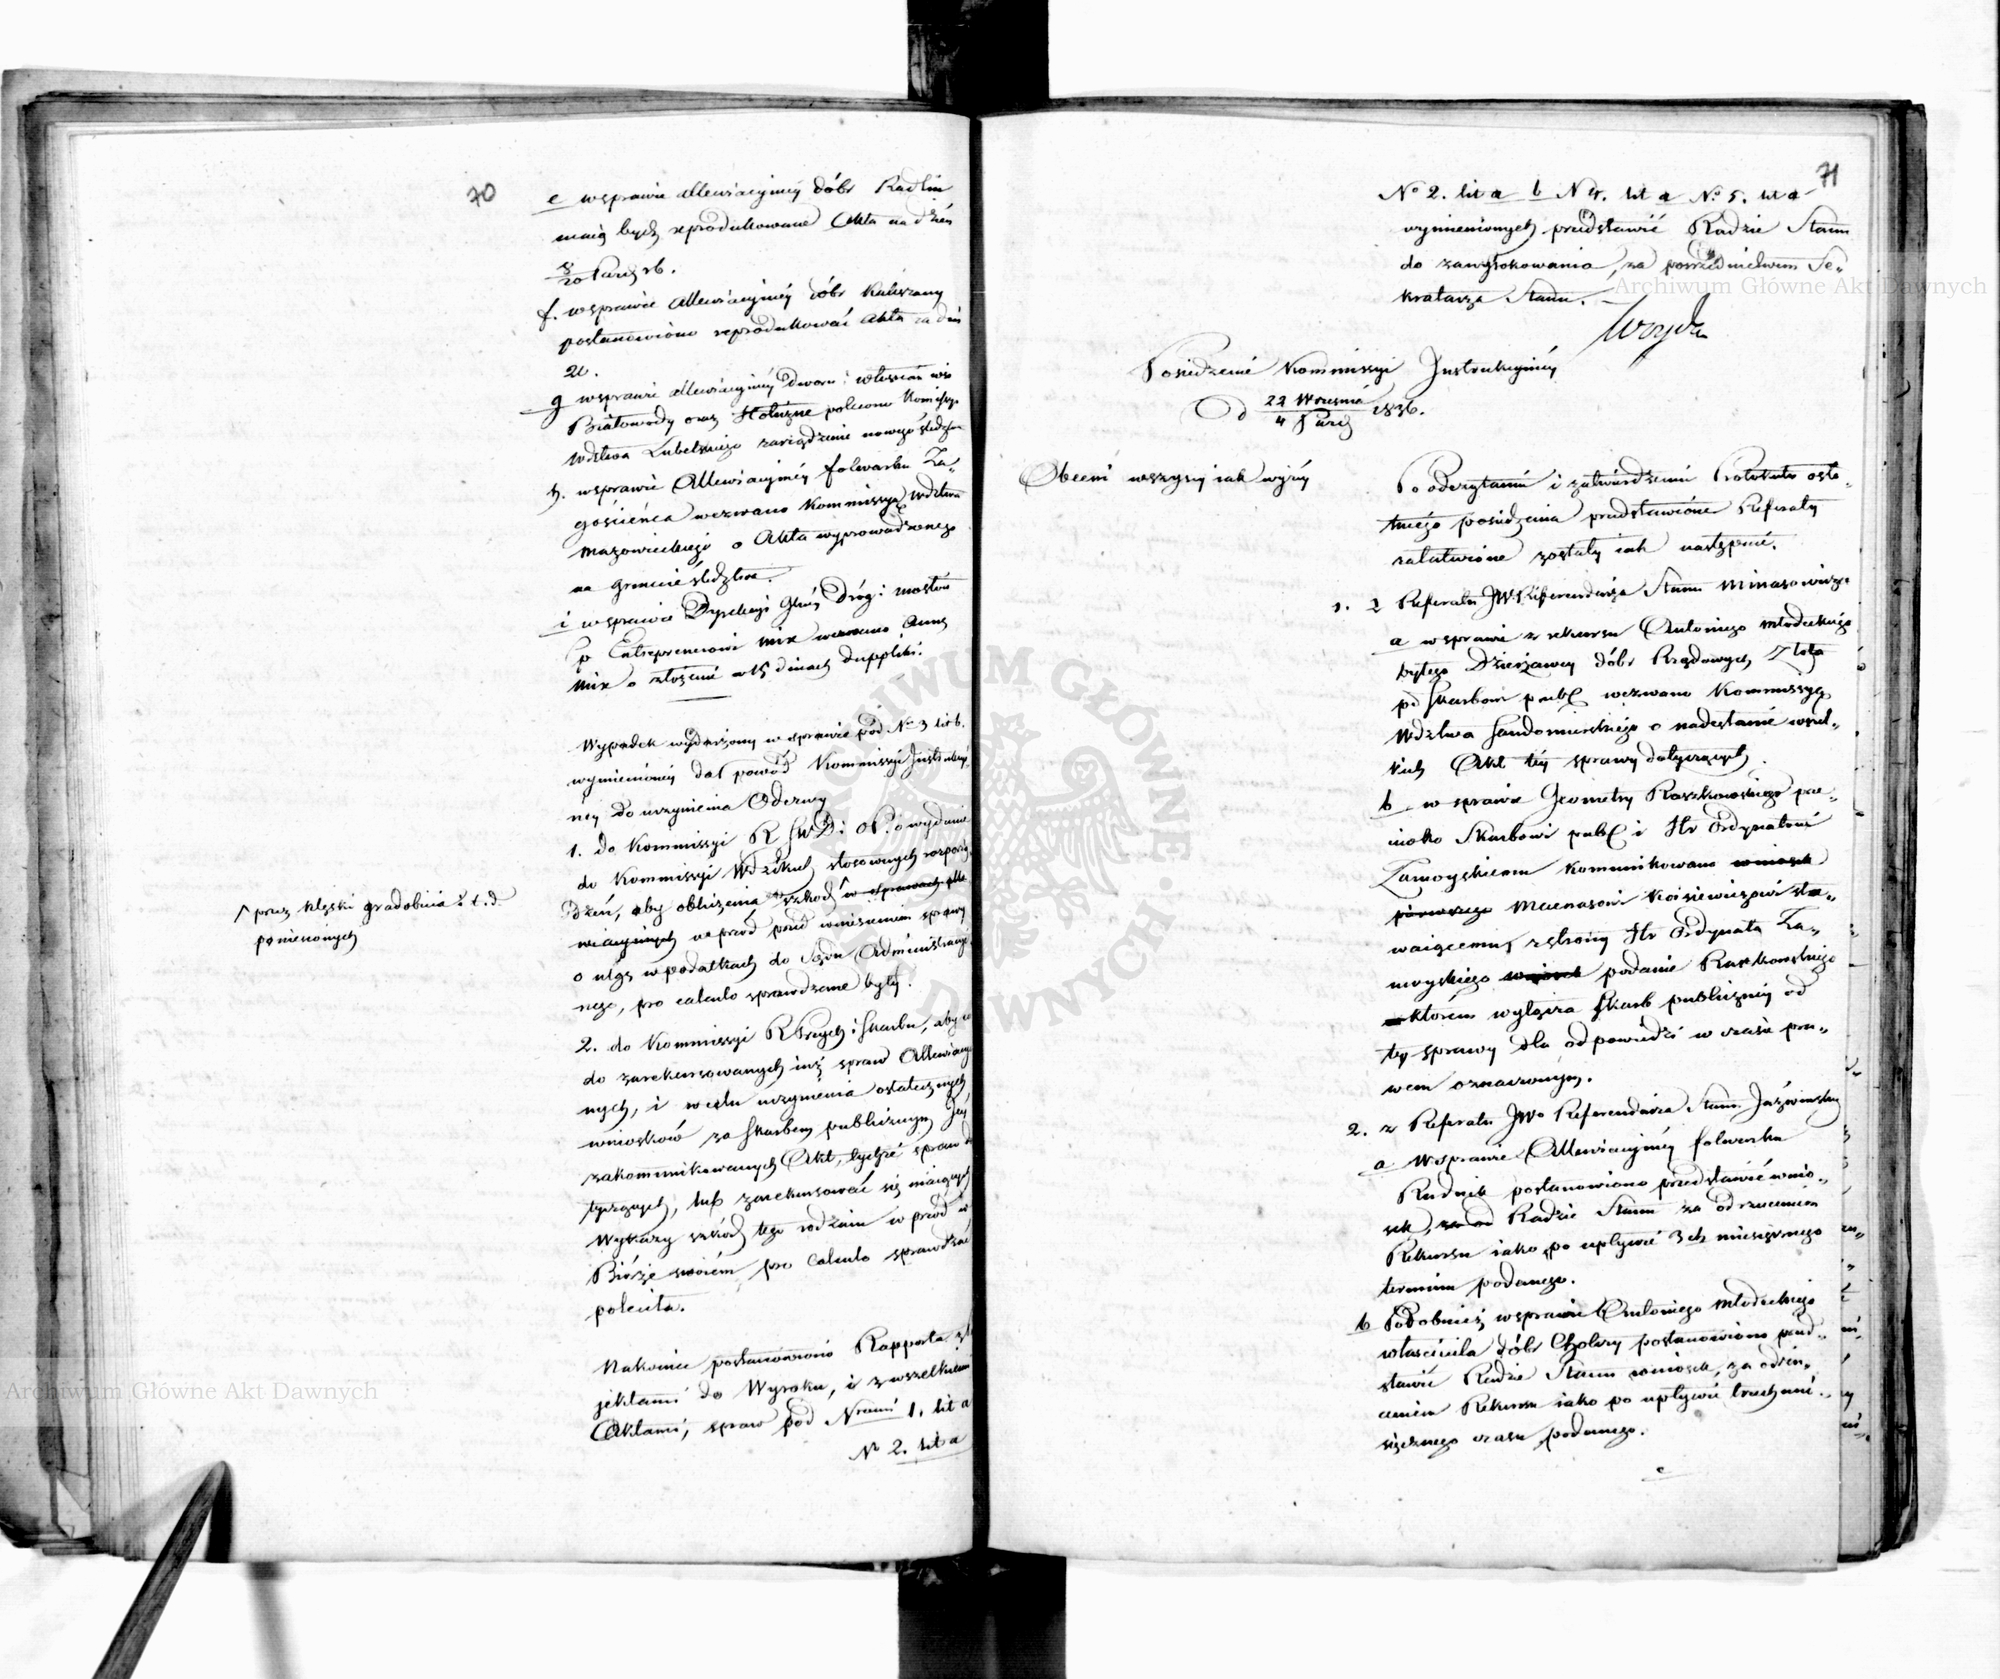 70
e w sprawie allewiacyjnéy dóbr Radlin
maią bydź reprodukowane Akta na dzień
8/20 Paźd. rb.
f. w sprawie Allewiacyjnéy dóbr
postanowiono reprodukować Akta na dzień
20.
g w sprawie Allewiacyjnéy Dworu i włościan wsi
Białowody oraz polecono Kommissyi
Wdztwa Lubelskiego zarządzenie nowego śledztwa
h. w sprawie Allewiacyjnéy folwarku Za„
gościńca wezwano Kommissyą Wdztwa
Mazowieckiego o Akta wyprowadzonego
na gruncie śledztwa.
i w sprawie Dyrekcyi Głnéy Dróg i mostów
Entreprenerowi Mix wezwano Annę
Mix o złożenie w 15 dniach duppliki.
Wypadek wydarzony w sprawie pod No 3 lit b.
wymienionéy dał powód Kommissyi Instrukcyi„
néy do uczynienia Odezwy
1. do Kommissyi R S W D i O P. o wydanie
do Kommissyi Wdzkich stosownych rozporzą
dzeń, aby obliczenia szkód w sprawach alle
wiacyinych wprzód przed wniesieniem sprawy
o ulgę w podatkach do Sądu Administracyi
nego, pro calculo sprawdzane były.
⌈ przez klęski gradobicia i t. d.
poniesionych
2. do Kommissyi R Przych i Skarbu, aby co
do zarekursowanych iuż spraw Allewiacyi
nych, i w celu uczynienia ostatecznych
wniosków za Skarbem publicznym Jéy
zakommunikowanych Akt, tychże spraw do
tyczących, lub zarekursować się maiących
Wykazy szkód tego rodzaiu wprzód w
Biórze swoiém pro calculo sprawdzać
poleciła.
Nakoniec postanowiono Rapporta z
jektami do Wyroku, i z wszelkiemi
Aktami, spraw pod Nrami 1, lit a
No 2. lit a
71
No 2. lit a b N 4. lit a No 5. lit a
wymienionych przedstawić Radzie Stanu
do zawyrokowania, za pośrednictwem Se„
kretarza Stanu.
Woyda
Posiedzenie Kommissyi Instrukcyjnéy
D 22 Września / 4 Paźdz 1836.
Obecni wszyscy iak wyżéy
Po odczytaniu i zatwierdzeniu Protokułu osta„
tniego posiedzenia przedstawione Referaty
załatwione zostały iak następuie.
1. z Referatu JW Referendarza Stanu Minasowicza
a w sprawie z rekursu Antoniego Młodeckiego
byłego Dzierżawcy dóbr Rządowych Złota
pko Skarbowi publ wezwano Kommissyą
Wdztwa Sandomierskiego o nadesłanie wszel„
kich Akt téy sprawy dotyczących.
b w sprawie Geometry Raszkowskiego prze„
ciwko Skarbowi publ i Hr Ordynatowi
Zamoyskiemu Kommunikowano wniosek
Mecenasowi Kosiewiczowi sta„
waiącemu z strony Hr Ordynata Za„
moyskiego wniosek podanie Raszkowskiego
w którém wyłącza Skarb publiczny od
téy sprawy dla odpowiedzi w czasie pra„
wem oznaczonym.
2. z Referatu JWo Referendarza Stanu Jaźwińskiego
a W sprawie Allewiacyjnéy folwarku
Rudnik postanowiono przedstawić wnio„
sek, Radzie Stanu za odrzuceniem
Rekursu iako po upływie 3ch miesięcznego
terminu podanego.
b Podobnież w sprawie Antoniego Młodeckiego
właściciela dóbr postanowiono przed„
stawić Radzie Stanu wniosek, za odrzu„
ceniem Rekursu iako po upływie trzechmie„
sięcznego czasu podanego.
c
Archiwum Główne Akt Dawnych
Archiwum Główne Akt Dawnych
ARCHIWUM GŁÓWNE AKT DAWNYCH